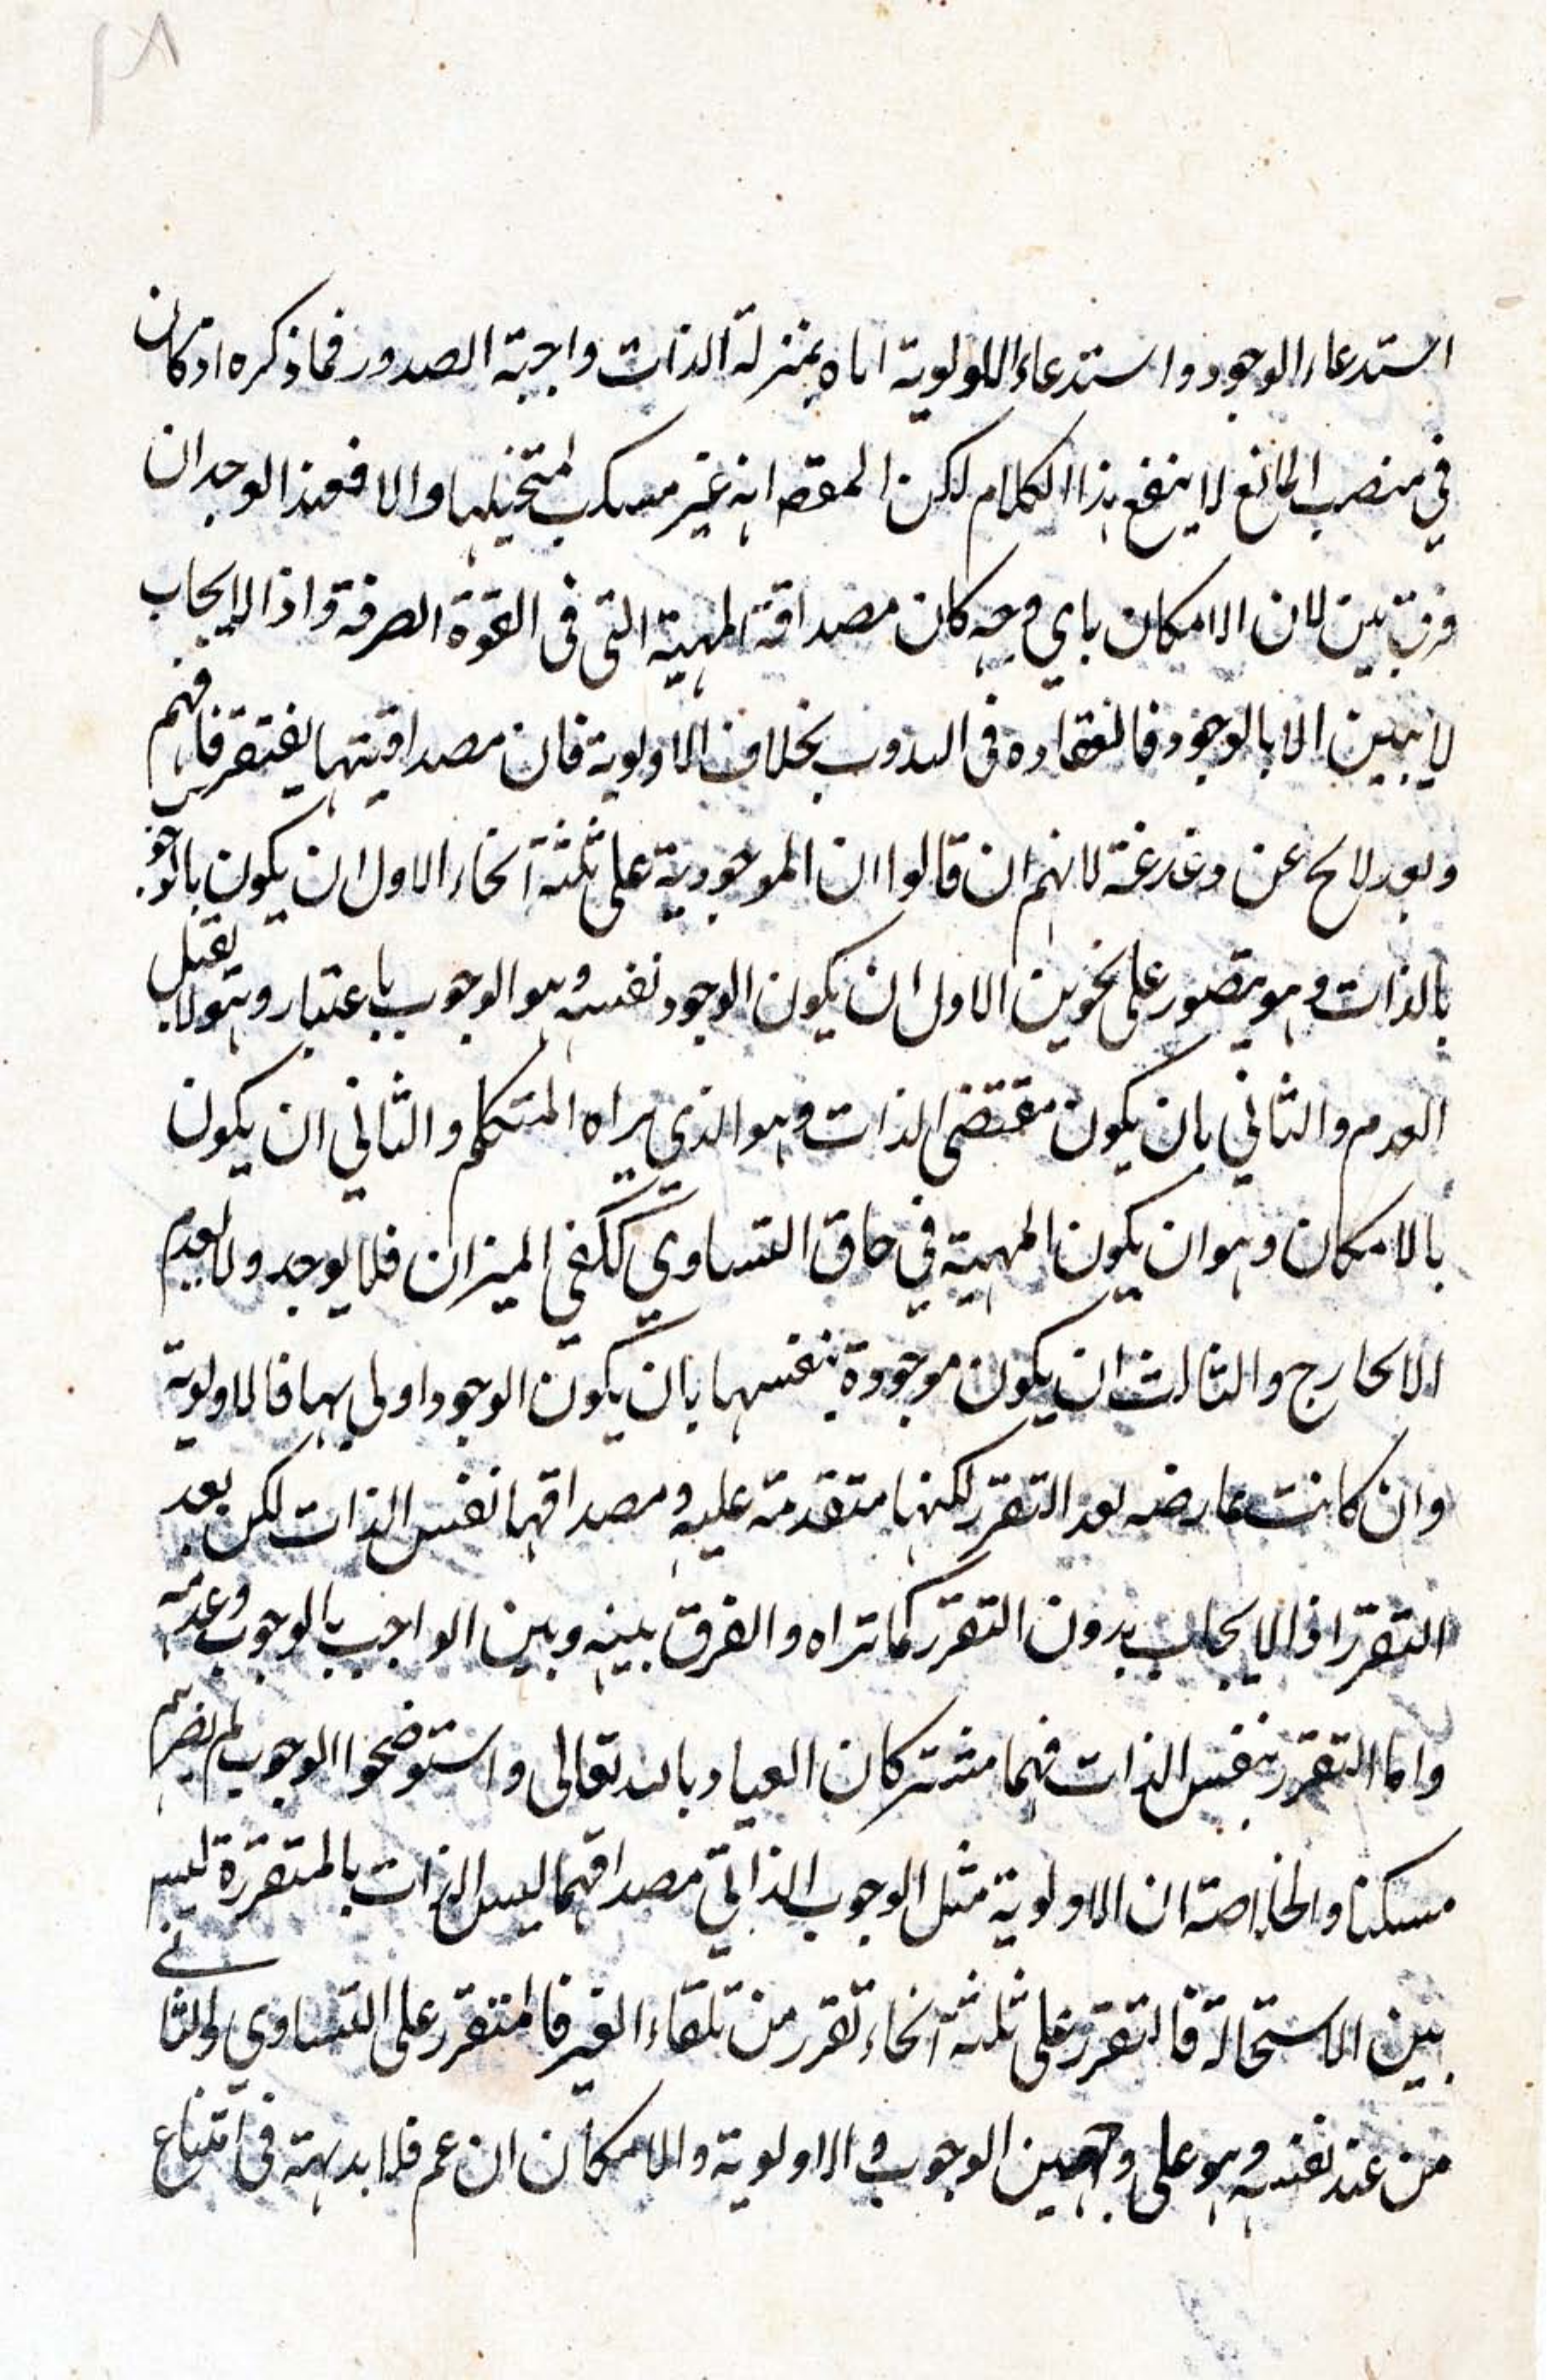 ٢٨
استدعاء الوجود واستدعاء اللولوية اياه بمنزلة الذات واجبة الصدور فما ذكره اذ كان
في منصب المانع لا ينفع هذا الكلام لكن المقصه انه غير مسكت لمتخيليها والا فعند الوجدان
فرق بين لان الامكان باي وجه كان مصداقة المهية التي في القوة الصرفة واذ الايجاب
لا يبين الا بالوجود فانعقاده في البدوب بخلاف الاولوية فان مصداقيتها يفتقر فافهم
وبعد لاح عن دغدغة لانهم ان قالوا ان الموجودية على ثلثة انحاء الاول ان يكون بالوجو
بالذات وهو يتصور على نحوين الاول ان يكون الوجود نفسه وهو الوجوب باعتبار وهو لا يقبل
العدم والثاني بان يكون مقتضى الذات وهو الذي يراه المتكلم والثاني ان يكون
بالامكان وهو ان يكون المهية في حاق التساوي ككفي الميزان فلا يوجد ولا يعدم
الا لخارج والثالث ان يكون موجودة بنفسها بان يكون الوجود اولى بها فالاولوية
وان كانت عارضه بعد التقرر لكنها متقدمة عليه ومصداقهما نفس الذات لكن بعد
التقرر اذ الايجاب بدون التقرر كما تراه والفرق بينه وبين الواجب بالوجوب وعدمه
واما التقرر بنفس الذات فهما مشتركان العياد بالله تعالى واستوضحوا الوجوب لم يضرهم
مسكنا والخلاصة ان الاولوية مثل الوجوب الذاتي مصداقهما ليس الذات بالمتقررة ليس
بين الاستحالة فالتقرر على ثلثة انحاء تقرر من تلقاء الغير فالمتقرر على التساوي والثاني
من عند نفسه وهو على وجهين الوجوب والاولوية والامكان ان عم فلا بديهة في امتناع